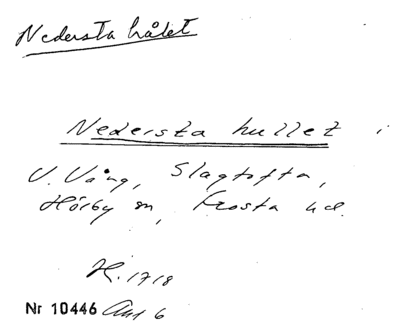 Nedersta hålet
Nedersta hullet i
V. Vång, Slagtofta,
Hörby sn, Frosta hd.
H. 1718
Nr 10446 Aut 6